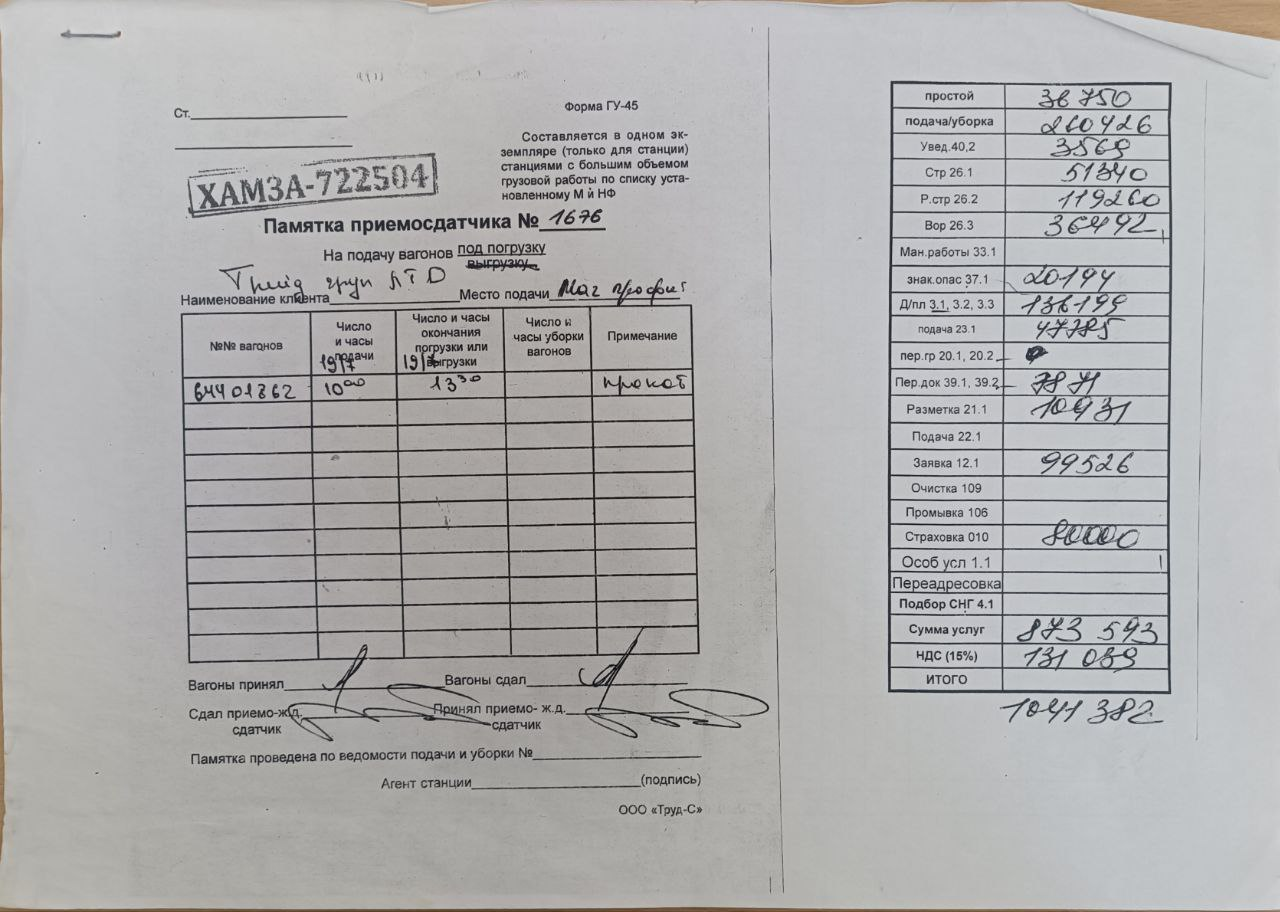 Ст.
Форма ГУ-45
Составляется в одном эк-
земпляре (только для станции)
станциями с большим объемом
грузовой работы по списку уста-
новленному М й НФ
ХАМЗА-722504
Памятка приемосдатчика № 1676
На подачу вагонов под погрузку
выгрузку
Наименование клиента Трейд груп ЛТД Место подачи Маг профит
№№ вагонов
Число и часы подачи 19/7
Число и часы окончания погрузки или выгрузки 19/7
Число и часы уборки вагонов
Примечание
64401862 10 00 13 30 прокат
Вагоны принял Вагоны сдал
Сдал приемо-ж.д. Принял приемо- ж.д.
сдатчик сдатчик
Памятка проведена по ведомости подачи и уборки №
Агент станции (подпись)
ООО «Труд-С»
простой 36 750
подача/уборка 260426
Увед.40,2 3569
Стр 26.1 51340
Р.стр 26.2 119260
Вор 26.3 36492
Ман.работы 33.1
знак.опас 37.1 20194
Д/пл 3.1, 3.2, 3.3 136199
подача 23.1 47785
пер.гр 20.1, 20.2
Пер.док 39.1, 39.2 7871
Разметка 21.1 10931
Подача 22.1
Заявка 12.1 99526
Очистка 109
Промывка 106
Страховка 010 80000
Особ усл 1.1
Переадресовка
Подбор СНГ 4.1
Сумма услуг 873 593
НДС (15%) 131 039
ИТОГО
1041 382